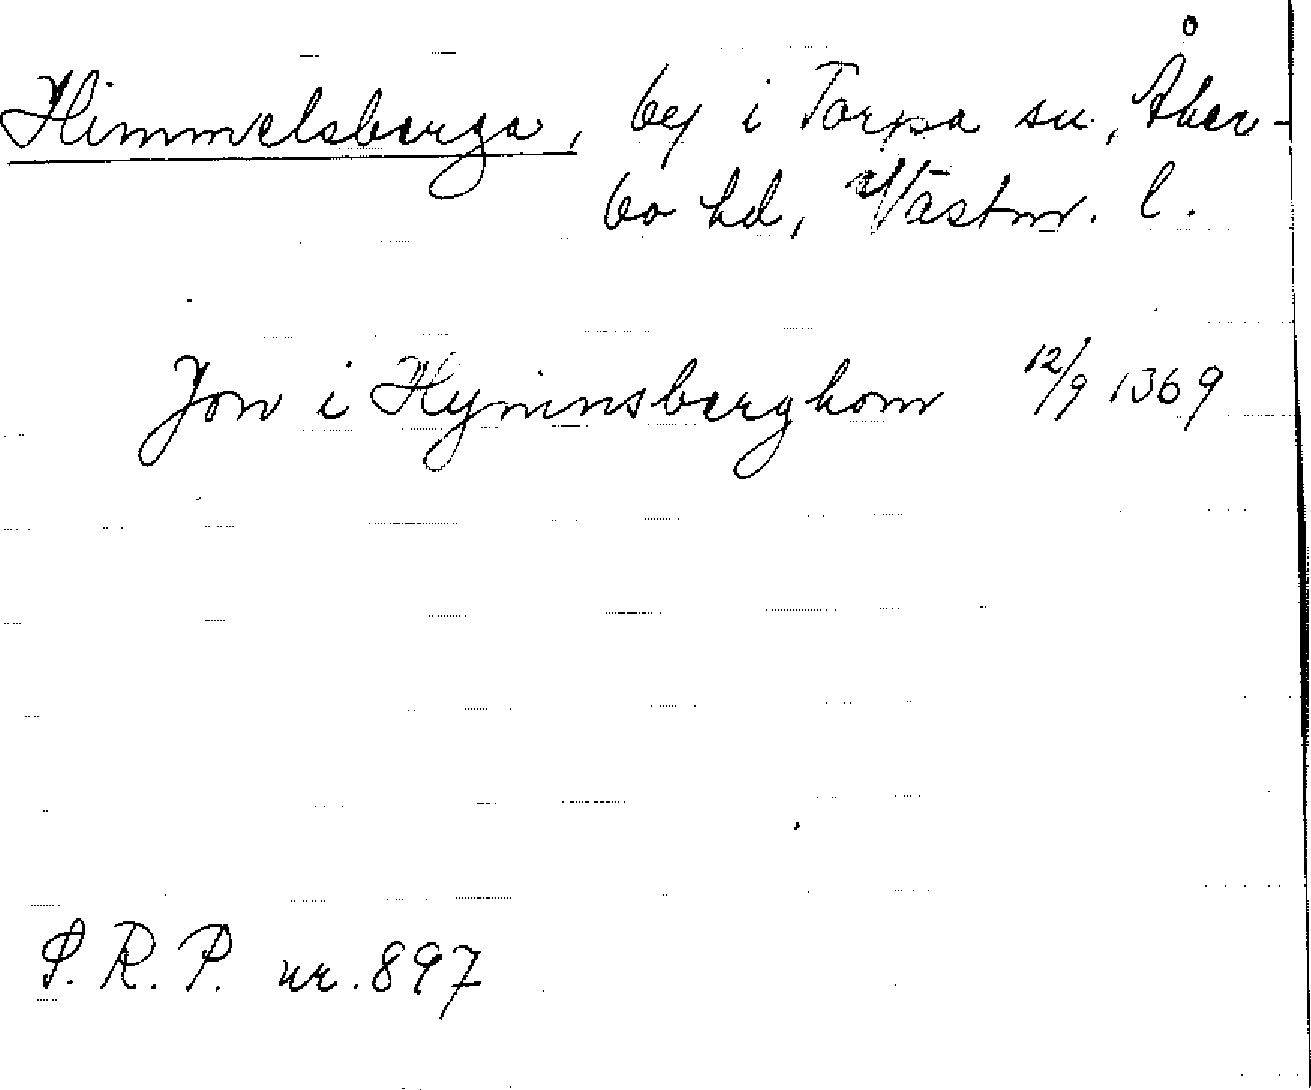 Himmelsberga, by i Torpa sn., Åker-
bo hd, Västm. l.
Jon i Hyminsberghom 12/9 1369
S. R. P. nr. 897